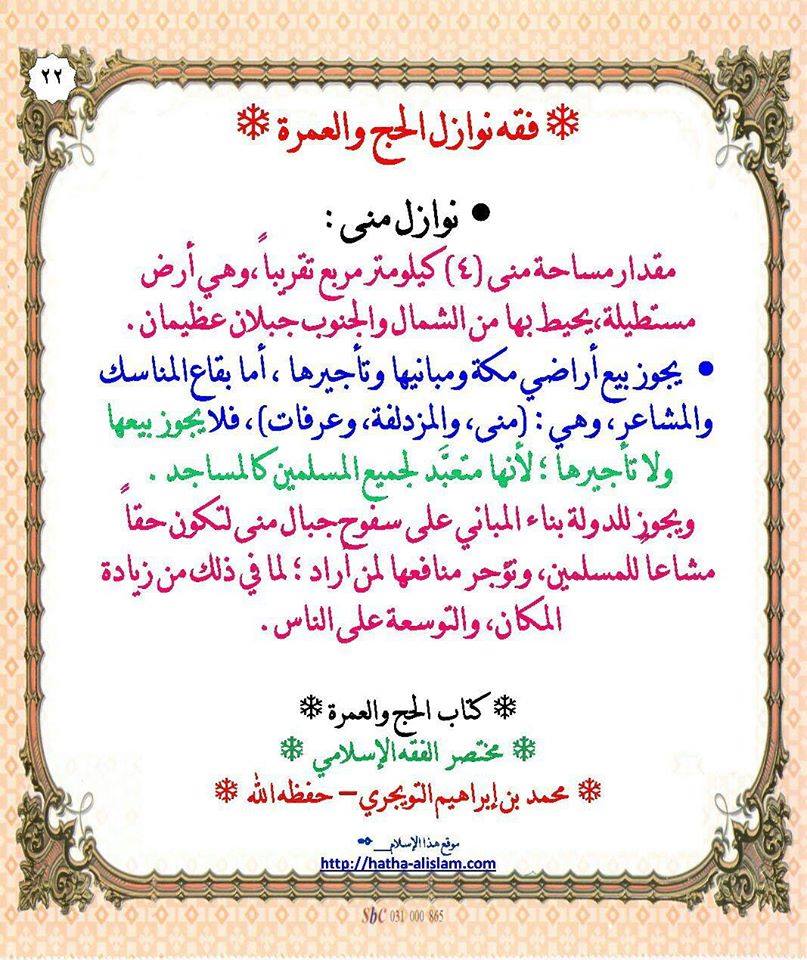 ٢٢
❄ فقه نوازل الحج والعمرة ❄
● نوازل منى :
مقدار مساحة منى (٤) كيلومتر مربع تقريباً، وهي أرض
مستطيلة، يحيط بها من الشمال والجنوب جبلان عظيمان .
● يجوز بيع أراضي مكة ومبانيها وتأجيرها ، أما بقاع المناسك
والمشاعر ، وهي : (منى، والمزدلفة، وعرفات) ، فلا يجوز بيعها
ولا تأجيرها ؛ لأنها متعبَّد لجميع المسلمين كالمساجد .
ويجوز للدولة بناء المباني على سفوح جبال منى لتكون حقاً
مشاعاً للمسلمين، وتؤجر منافعها لمن أراد ؛ لما في ذلك من زيادة
المكان، والتوسعة على الناس .
❄ كتاب الحج والعمرة ❄
❄ مختصر الفقه الإسلامي ❄
❄ محمد بن إبراهيم التويجري – حفظه الله ❄
موقع هذا الإسلام
http://hatha-alislam.com
SbC 031 000 865